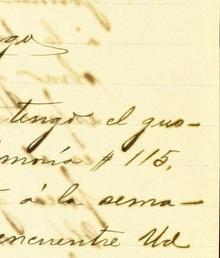 tengo el gus-
moria # 115,
á la sema-
encuentre Ud